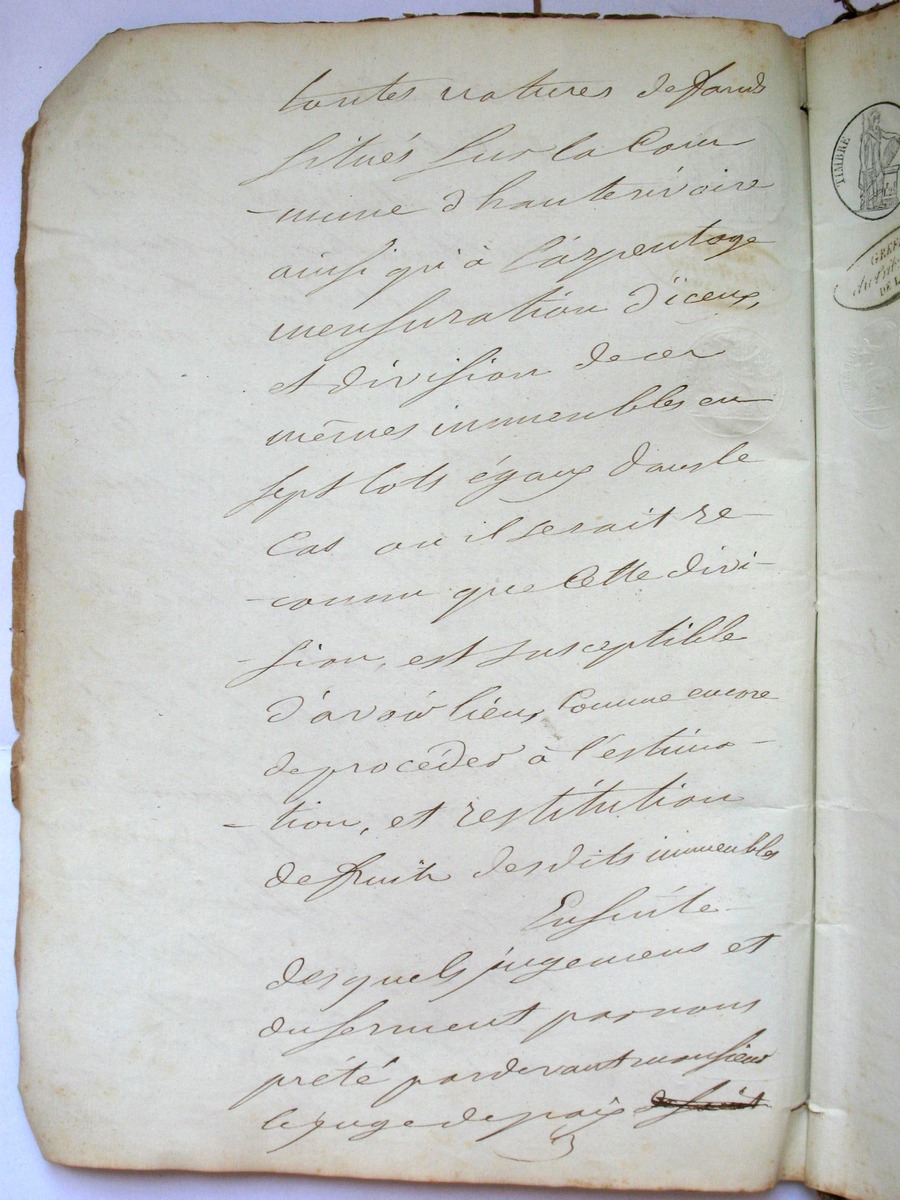 toutes natures de fonds
situés sur la Com
-mune d'hauterivoire
ainsi qu'à l'arpentage
mensuration d'iceux,
et division de ces
mêmes immeubles en
sept lots égaux dans le
Cas ou il serait re-
-connu que Cette divi-
-sion, est susceptible
d'avoir lieu, Comme encore
de procéder à l'estima-
-tion, et restitution
de fruits desdits immeubles
Ensuite
desquels jugemens et
du serment par nous
prété pardevant monsieur
le juge de paix
TIMBRE
GREFF
DE L